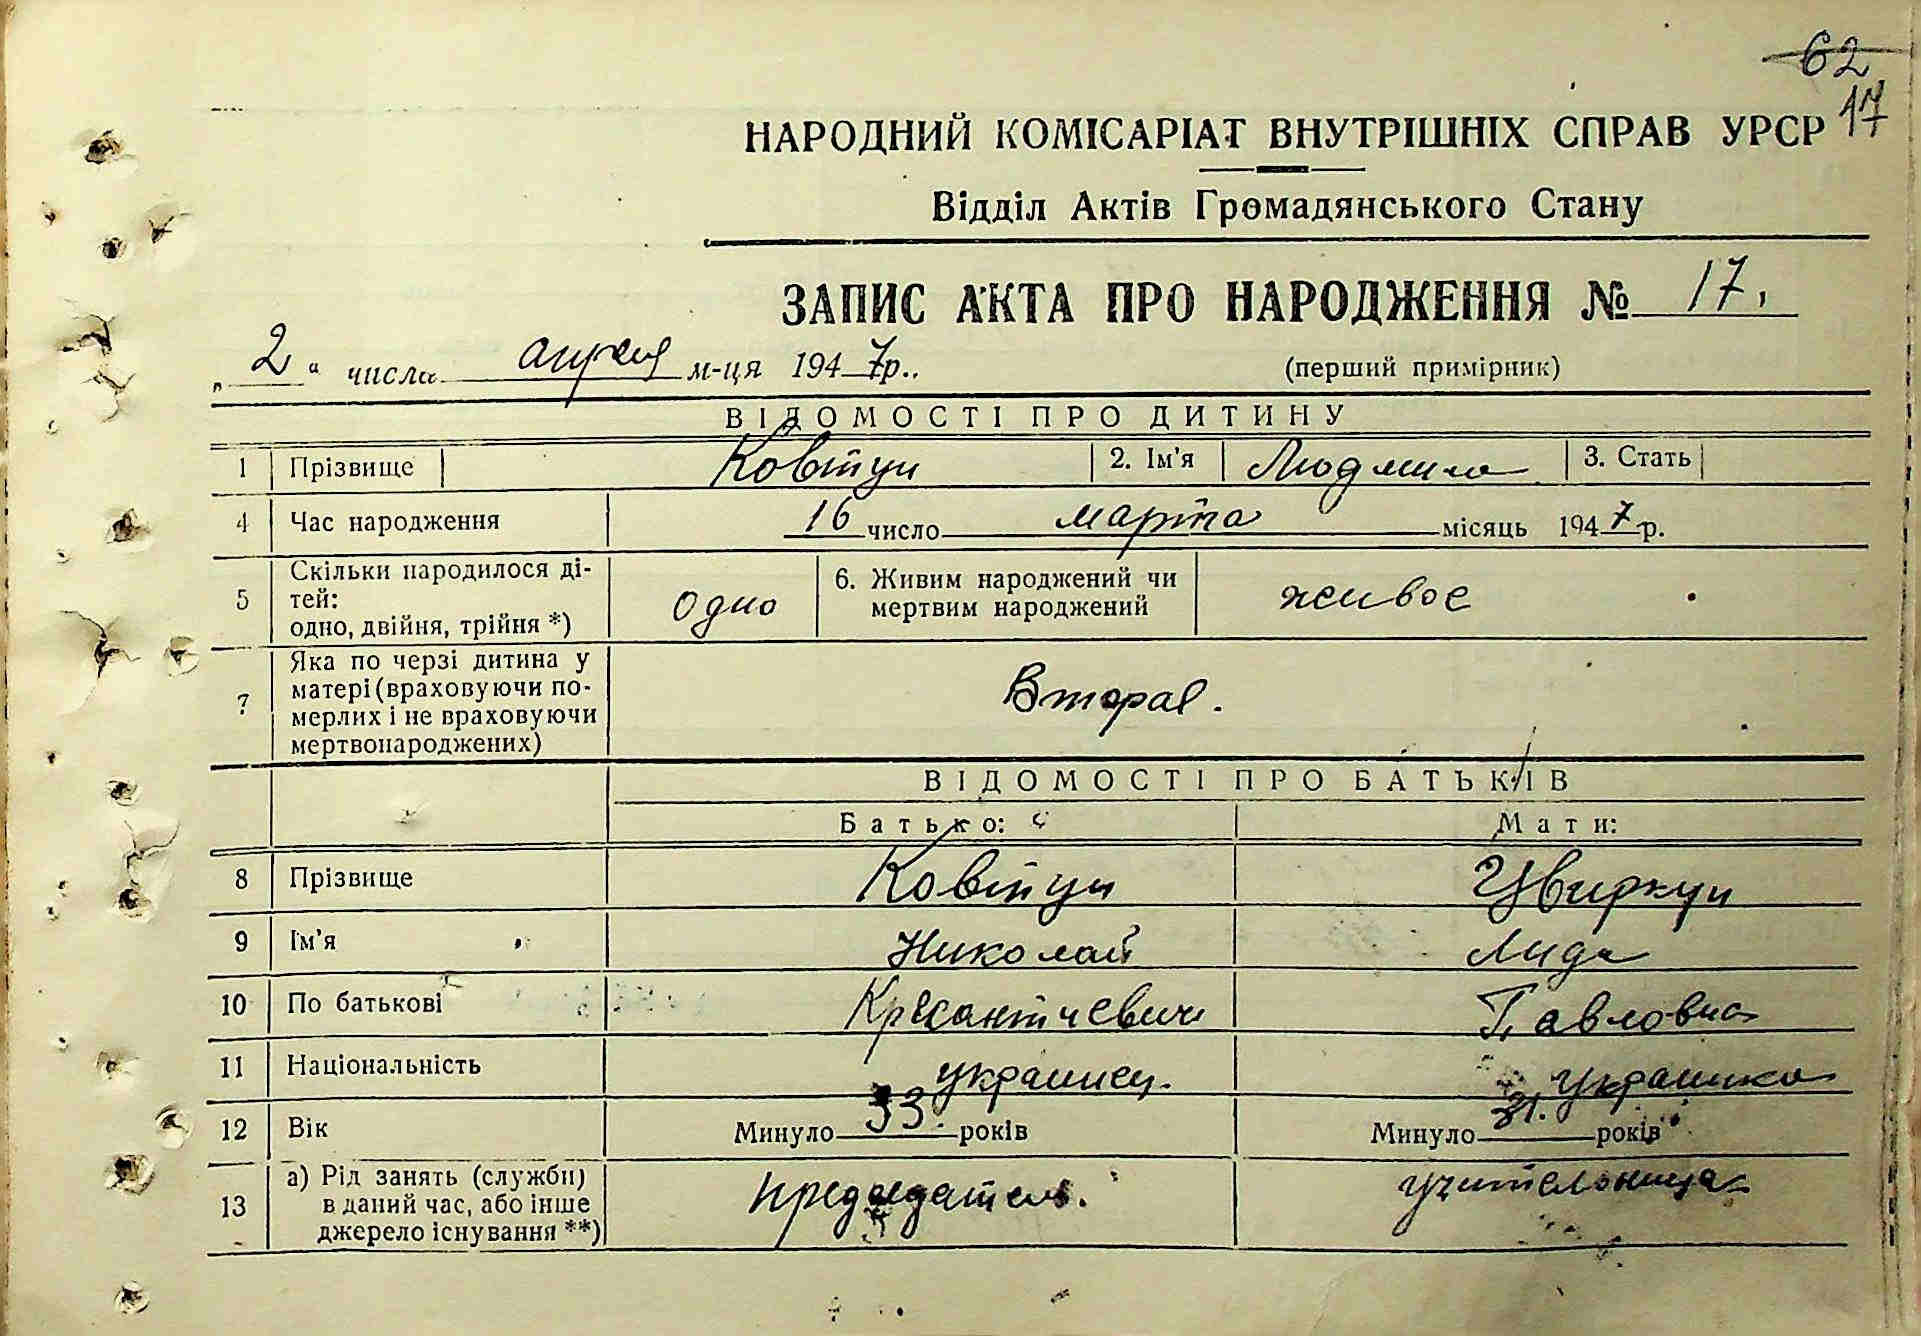 62
17
НАРОДНИЙ КОМІСАРІАТ ВНУТРІШНІХ СПРАВ УРСР
Відділ Актів Громадянського Стану
ЗАПИС АКТА ПРО НАРОДЖЕННЯ № 17.
„ 2 “ числа апреля м-ця 1947р.. (перший примірник)
ВІДОМОСТІ ПРО ДИТИНУ
1 Прізвище Ковтун 2. Ім'я Людмила 3. Стать
4 Час народження 16 число марта місяць 1947 р.
5 Скільки народилося ді-
тей:
одно, двійня, трійня *) одно 6. Живим народжений чи
мертвим народжений живое
7 Яка по черзі дитина у
матері (враховуючи по-
мерлих і не враховуючи
мертвонароджених) Вторая.
ВІДОМОСТІ ПРО БАТЬКІВ
Батько: Мати:
8 Прізвище Ковтун Цвиркун
9 Ім'я Николай Лида
10 По батькові Павловна
11 Національність украинец. украинка
12 Вік Минуло 33. років Минуло 31. років
13 а) Рід занять (служби)
в даний час, або інше
джерело існування **) председатель. учительница